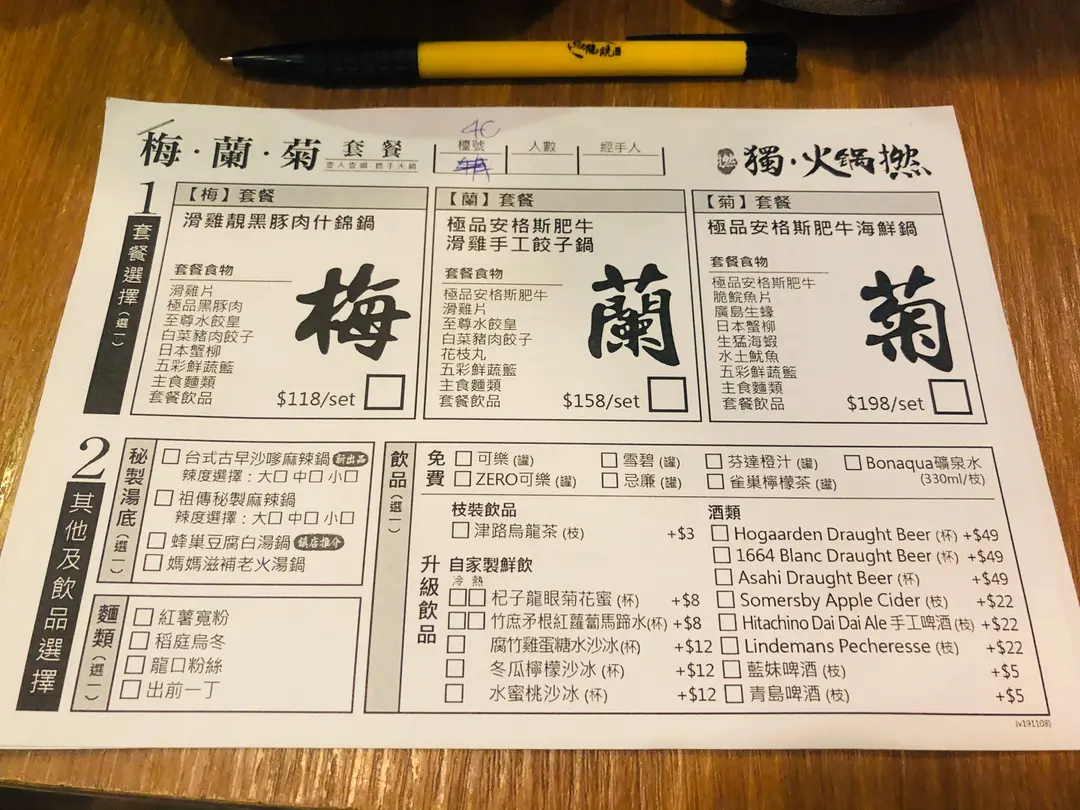 梅·蘭·菊 套餐
壹人壹鍋 攪手火鍋
檯號 人數 經手人
4C
獨·火鍋撚
1 套餐選擇(選一)
【梅】套餐
滑雞靚黑豚肉什錦鍋
套餐食物
滑雞片
極品黑豚肉
至尊水餃皇
白菜豬肉餃子
日本蟹柳
五彩鮮蔬籃
主食麵類
套餐飲品
梅
$118/set
【蘭】套餐
極品安格斯肥牛
滑雞手工餃子鍋
套餐食物
極品安格斯肥牛
滑雞片
至尊水餃皇
白菜豬肉餃子
花枝丸
五彩鮮蔬籃
主食麵類
套餐飲品
蘭
$158/set
【菊】套餐
極品安格斯肥牛海鮮鍋
套餐食物
極品安格斯肥牛
脆鯇魚片
廣島生蠔
日本蟹柳
生猛海蝦
水土魷魚
五彩鮮蔬籃
主食麵類
套餐飲品
菊
$198/set
2 其他及飲品選擇
秘製湯底(選一)
台式古早沙嗲麻辣鍋 新出品
辣度選擇:大□ 中□ 小□
祖傳秘製麻辣鍋
辣度選擇:大□ 中□ 小□
蜂巢豆腐白湯鍋 鎮店推介
媽媽滋補老火湯鍋
麵類(選一)
紅薯寬粉
稻庭烏冬
龍口粉絲
出前一丁
飲品(選一)
免費
可樂 (罐) 雪碧 (罐) 芬達橙汁 (罐) Bonaqua礦泉水
(330ml/枝)
ZERO可樂 (罐) 忌廉 (罐) 雀巢檸檬茶 (罐)
升級飲品
枝裝飲品
津路烏龍茶 (枝) +$3
自家製鮮飲
冷 熱
杞子龍眼菊花蜜 (杯) +$8
竹庶矛根紅蘿蔔馬蹄水(杯) +$8
腐竹雞蛋糖水沙冰(杯) +$12
冬瓜檸檬沙冰 (杯) +$12
水蜜桃沙冰 (杯) +$12
酒類
Hogaarden Draught Beer (杯) +$49
1664 Blanc Draught Beer (杯) +$49
Asahi Draught Beer (杯) +$49
Somersby Apple Cider (枝) +$22
Hitachino Dai Dai Ale 手工啤酒 (枝) +$22
Lindemans Pecheresse (枝) +$22
藍妹啤酒 (枝) +$5
青島啤酒 (枝) +$5
(v191108)